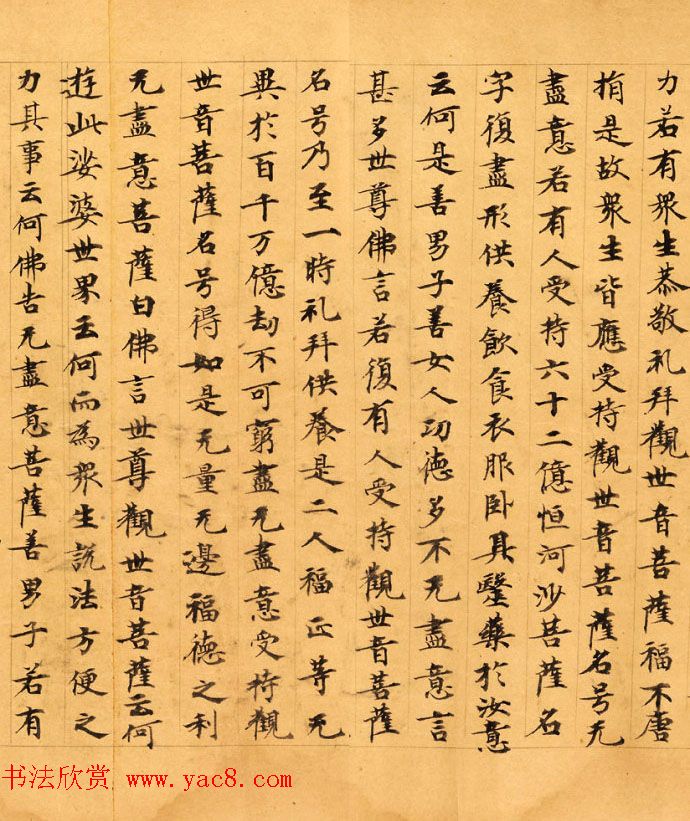 力若有衆生恭敬礼拜觀世音菩薩福不唐
捐是故衆生皆應受持觀世音菩薩名号无
盡意若有人受持六十二億恒河沙菩薩名
字復盡形供養飲食衣服卧具毉藥於汝意
云何是善男子善女人功德多不无盡意言
甚多世尊佛言若復有人受持觀世音菩薩
名号乃至一時礼拜供養是二人福正等无
異於百千万億劫不可窮盡无盡意受持觀
世音菩薩名号得如是无量无邊福德之利
无盡意菩薩白佛言世尊觀世音菩薩云何
遊此娑婆世界云何而為衆生說法方便之
力其事云何佛告无盡意菩薩善男子若有
书法欣赏 www.yac8.com